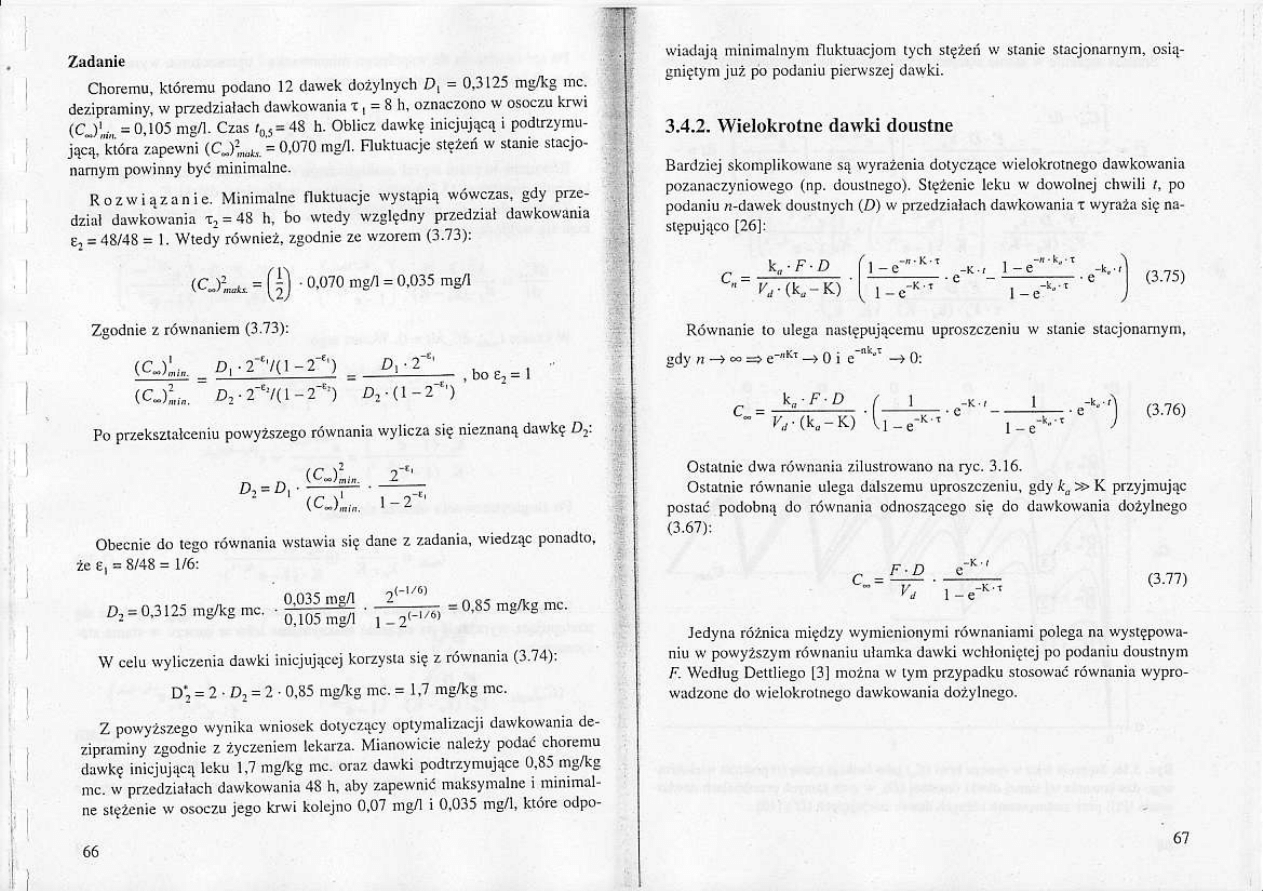 Zadanie
Choremu, któremu podano 12 dawek dożylnych D₁ = 0,3125 mg/kg mc.
dezipraminy, w przedziałach dawkowania τ₁ = 8 h, oznaczono w osoczu krwi
(C∞)¹min. = 0,105 mg/l. Czas t₀,₅ = 48 h. Oblicz dawkę inicjującą i podtrzymu-
jącą, która zapewni (C∞)²maks. = 0,070 mg/l. Fluktuacje stężeń w stanie stacjo-
narnym powinny być minimalne.
Rozwiązanie. Minimalne fluktuacje wystąpią wówczas, gdy prze-
dział dawkowania τ₂ = 48 h, bo wtedy względny przedział dawkowania
ε₂ = 48/48 = 1. Wtedy również, zgodnie ze wzorem (3.73):
(C∞)²maks. = (1/2) · 0,070 mg/l = 0,035 mg/l
Zgodnie z równaniem (3.73):
(C∞)¹min. / (C∞)²min. = D₁ · 2^(-ε₁)/(1 – 2^(-ε₁)) / D₂ · 2^(-ε₂)/(1 – 2^(-ε₂)) = D₁ · 2^(-ε₁) / D₂ · (1 – 2^(-ε₁)) , bo ε₂ = 1
Po przekształceniu powyższego równania wylicza się nieznaną dawkę D₂:
D₂ = D₁ · (C∞)²min. / (C∞)¹min. · 2^(-ε₁) / 1 – 2^(-ε₁)
Obecnie do tego równania wstawia się dane z zadania, wiedząc ponadto,
że ε₁ = 8/48 = 1/6:
D₂ = 0,3125 mg/kg mc. · 0,035 mg/l / 0,105 mg/l · 2^(-1/6) / 1 – 2^(-1/6) = 0,85 mg/kg mc.
W celu wyliczenia dawki inicjującej korzysta się z równania (3.74):
D*₂ = 2 · D₂ = 2 · 0,85 mg/kg mc. = 1,7 mg/kg mc.
Z powyższego wynika wniosek dotyczący optymalizacji dawkowania de-
zipraminy zgodnie z życzeniem lekarza. Mianowicie należy podać choremu
dawkę inicjującą leku 1,7 mg/kg mc. oraz dawki podtrzymujące 0,85 mg/kg
mc. w przedziałach dawkowania 48 h, aby zapewnić maksymalne i minimal-
ne stężenie w osoczu jego krwi kolejno 0,07 mg/l i 0,035 mg/l, które odpo-
66
wiadają minimalnym fluktuacjom tych stężeń w stanie stacjonarnym, osią-
gniętym już po podaniu pierwszej dawki.
3.4.2. Wielokrotne dawki doustne
Bardziej skomplikowane są wyrażenia dotyczące wielokrotnego dawkowania
pozanaczyniowego (np. doustnego). Stężenie leku w dowolnej chwili t, po
podaniu n-dawek doustnych (D) w przedziałach dawkowania τ wyraża się na-
stępująco [26]:
Cₙ = kₐ · F · D / V_d · (kₐ – K) · (1 – e^(-n · K · τ) / 1 – e^(-K · τ) · e^(-K · t) – 1 – e^(-n · kₐ · τ) / 1 – e^(-kₐ · τ) · e^(-kₐ · t)) (3.75)
Równanie to ulega następującemu uproszczeniu w stanie stacjonarnym,
gdy n → ∞ ⇒ e^(-nKτ) → 0 i e^(-nkₐτ) → 0:
C∞ = kₐ · F · D / V_d · (kₐ – K) · (1 / 1 – e^(-K · τ) · e^(-K · t) – 1 / 1 – e^(-kₐ · τ) · e^(-kₐ · t)) (3.76)
Ostatnie dwa równania zilustrowano na ryc. 3.16.
Ostatnie równanie ulega dalszemu uproszczeniu, gdy kₐ ≫ K przyjmując
postać podobną do równania odnoszącego się do dawkowania dożylnego
(3.67):
C∞ = F · D / V_d · e^(-K · t) / 1 – e^(-K · τ) (3.77)
Jedyna różnica między wymienionymi równaniami polega na występowa-
niu w powyższym równaniu ułamka dawki wchłoniętej po podaniu doustnym
F. Według Dettliego [3] można w tym przypadku stosować równania wypro-
wadzone do wielokrotnego dawkowania dożylnego.
67